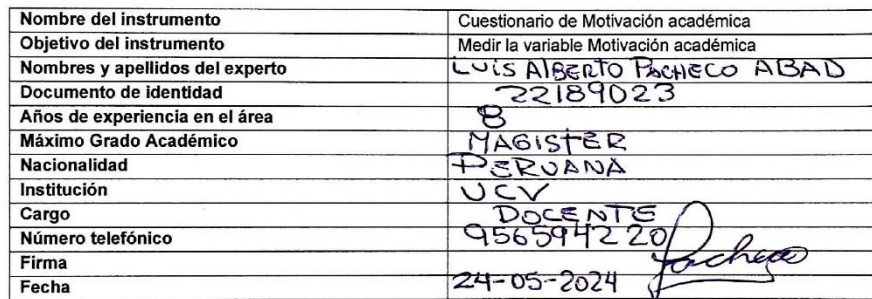 Nombre del instrumento Cuestionario de Motivación académica
Objetivo del instrumento Medir la variable Motivación académica
Nombres y apellidos del experto LUIS ALBERTO PACHECO ABAD
Documento de identidad 22189023
Años de experiencia en el área 8
Máximo Grado Académico MAGISTER
Nacionalidad PERUANA
Institución UCV
Cargo DOCENTE
Número telefónico 956594220
Firma Pacheco
Fecha 24-05-2024